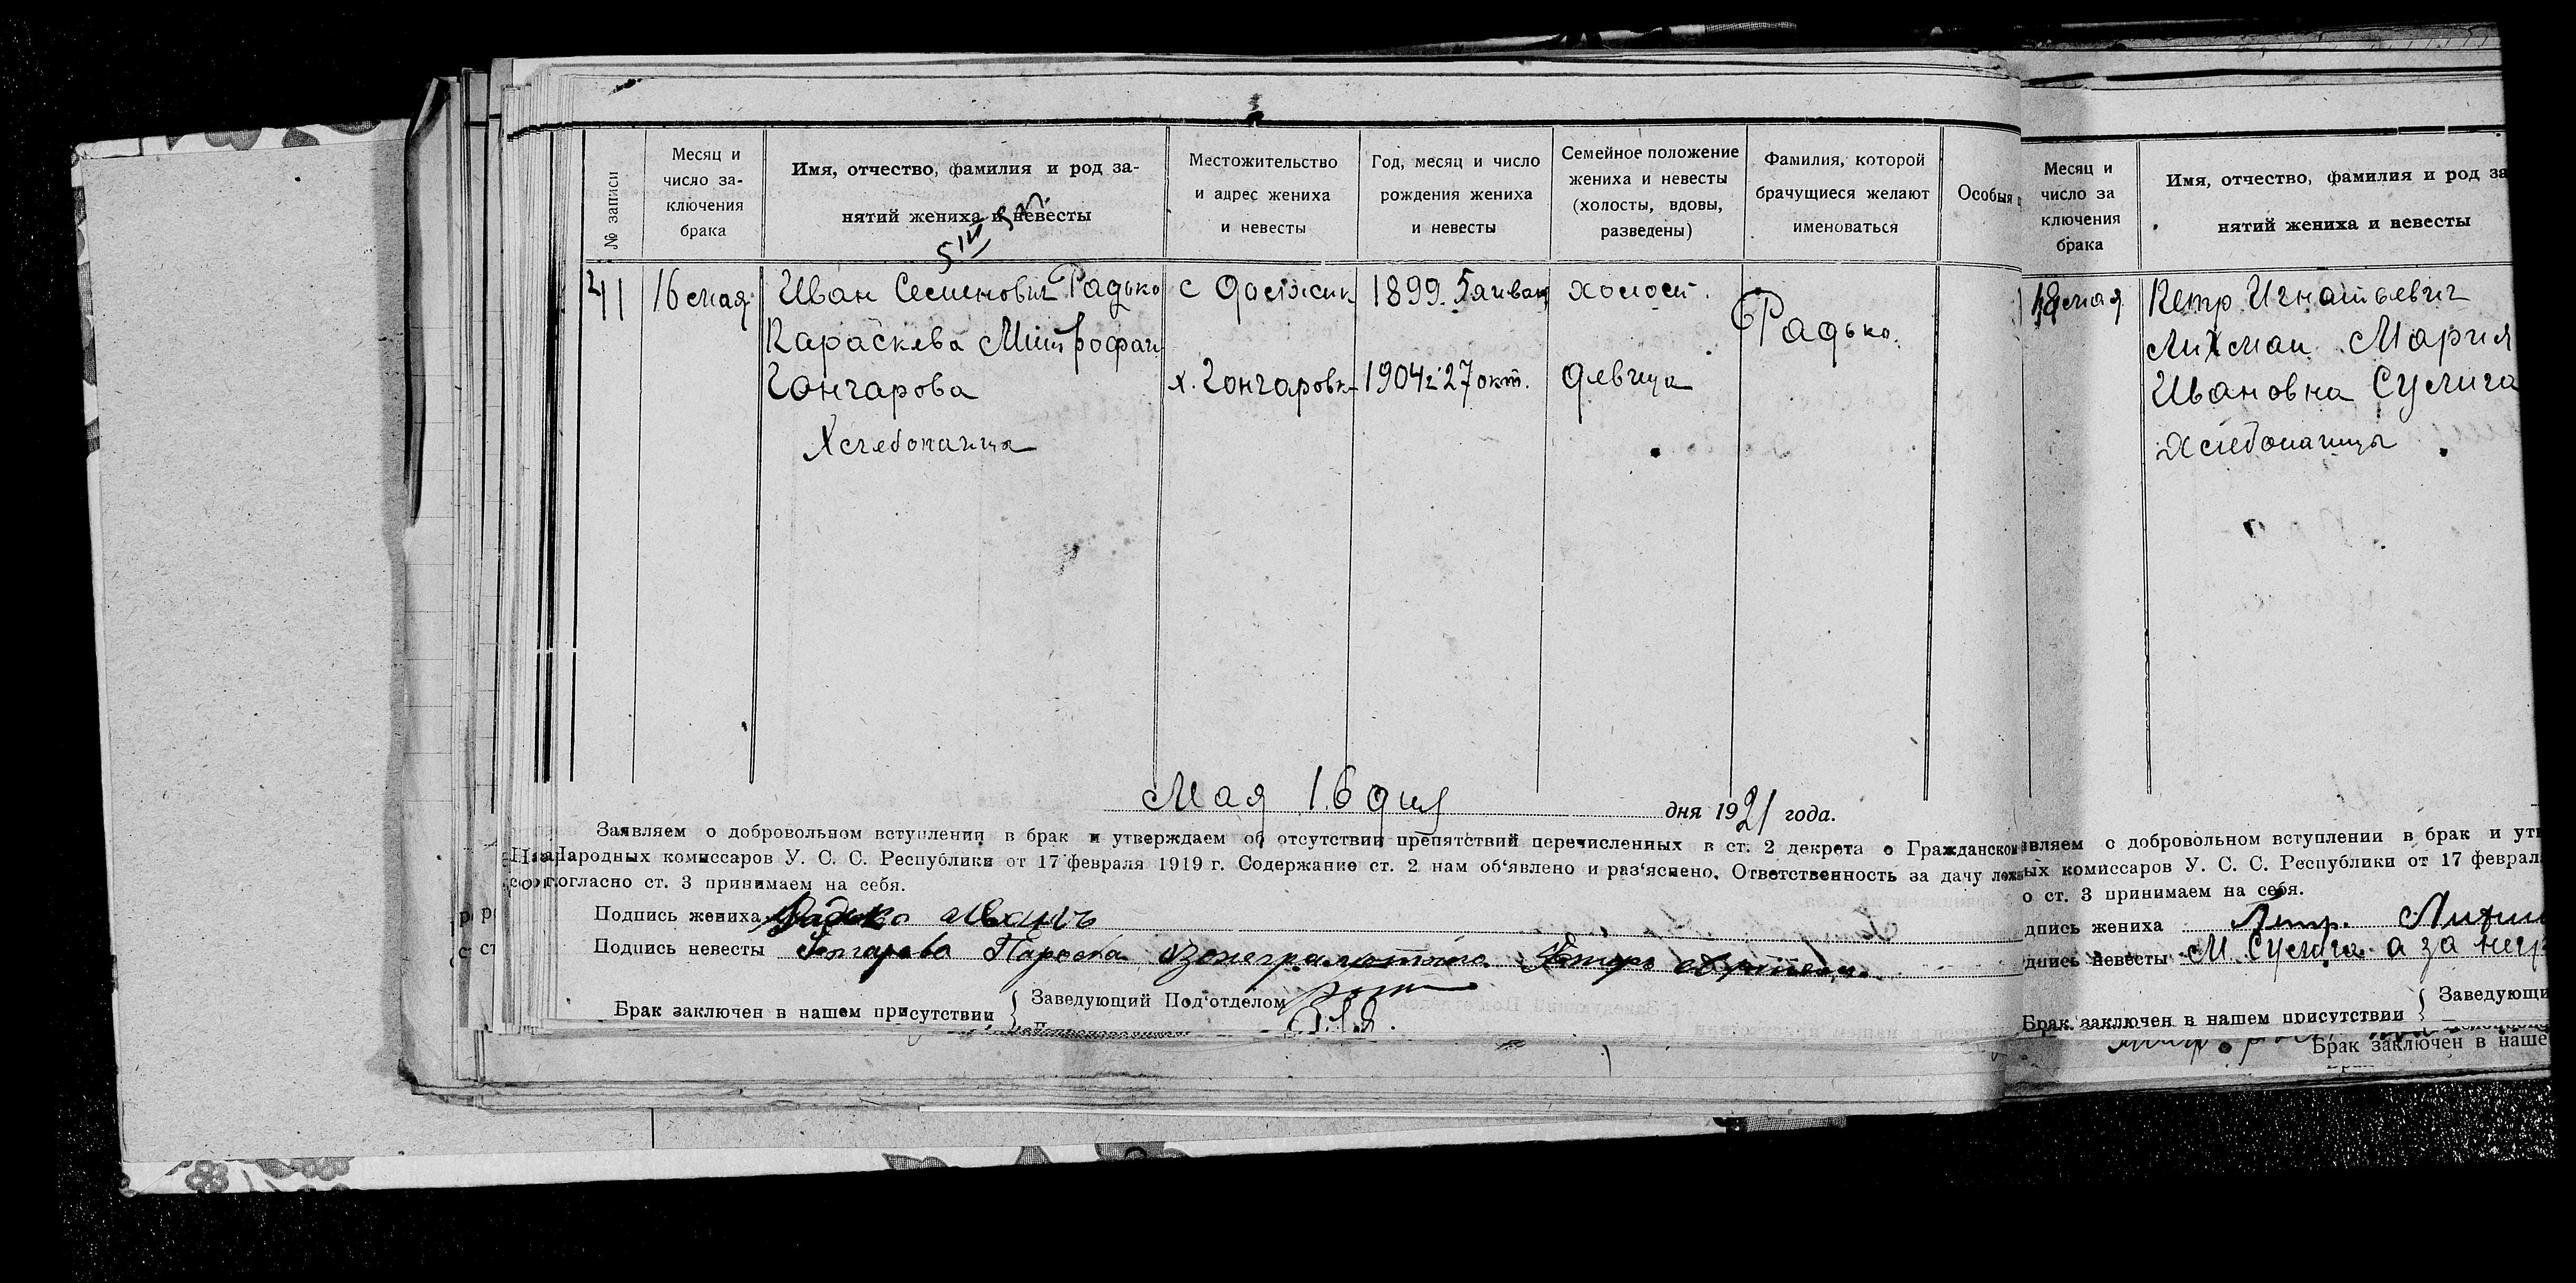 № записи
Месяц и
число за-
ключения
брака
Имя, отчество, фамилия и род за-
нятий жениха и невесты
Местожительство
и адрес жениха
и невесты
Год, месяц и число
рождения жениха
и невесты
Семейное положение
жениха и невесты
(холосты, вдовы,
разведены)
Фамилия, которой
брачущиеся желают
именоваться
Особыя
41
16 мая
Иван Семенович Радько
Параскева Митрофан
Гончарова
Хлебопашца
с
х. Гончаровк
1899. 5 январ
1904 г 27 окт.
холост.
девица
Радько.
Мая 16 дня дня 1921 года.
Заявляем о добровольном вступлении в брак и утверждаем об отсутствии препятствий перечисленных в ст. 2 декрета о Гражданском
Народных комиссаров У. С. С. Республики от 17 февраля 1919 г. Содержание ст. 2 нам об'явлено и раз'яснено. Ответственность за дачу
согласно ст. 3 принимаем на себя.
Подпись жениха Радько Иванъ
Подпись невесты Гончарова Параска
Брак заключен в нашем присутствии { Заведующий Под'отделом
Месяц и
число за
ключения
брака
Имя, отчество, фамилия и род за
нятий жениха и невесты
18 мая
Петр Игнатьевич
Лихман Мария
Ивановна Суслига
Хлебопашцы
вляем о добровольном вступлении в брак и
ых комиссаров У. С. С. Республики от 17 феврал
о ст. 3 принимаем на себя.
дпись жениха Петр.
дпись невесты М Суслига а за негр
Брак заключен в нашем присутствии { Заведующи
Брак заключен в наше